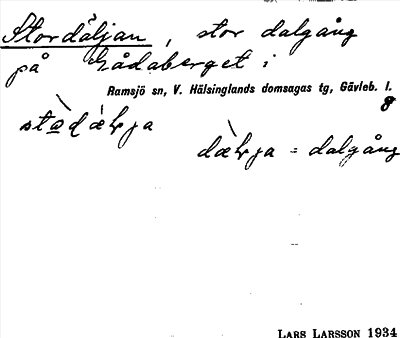 Stordäljan, stor dalgång
på Gådaberget i
Ramsjö sn, V. Hälsinglands domsagas tg, Gävleb. l.
8
dalgång
LARS LARSSON 1934